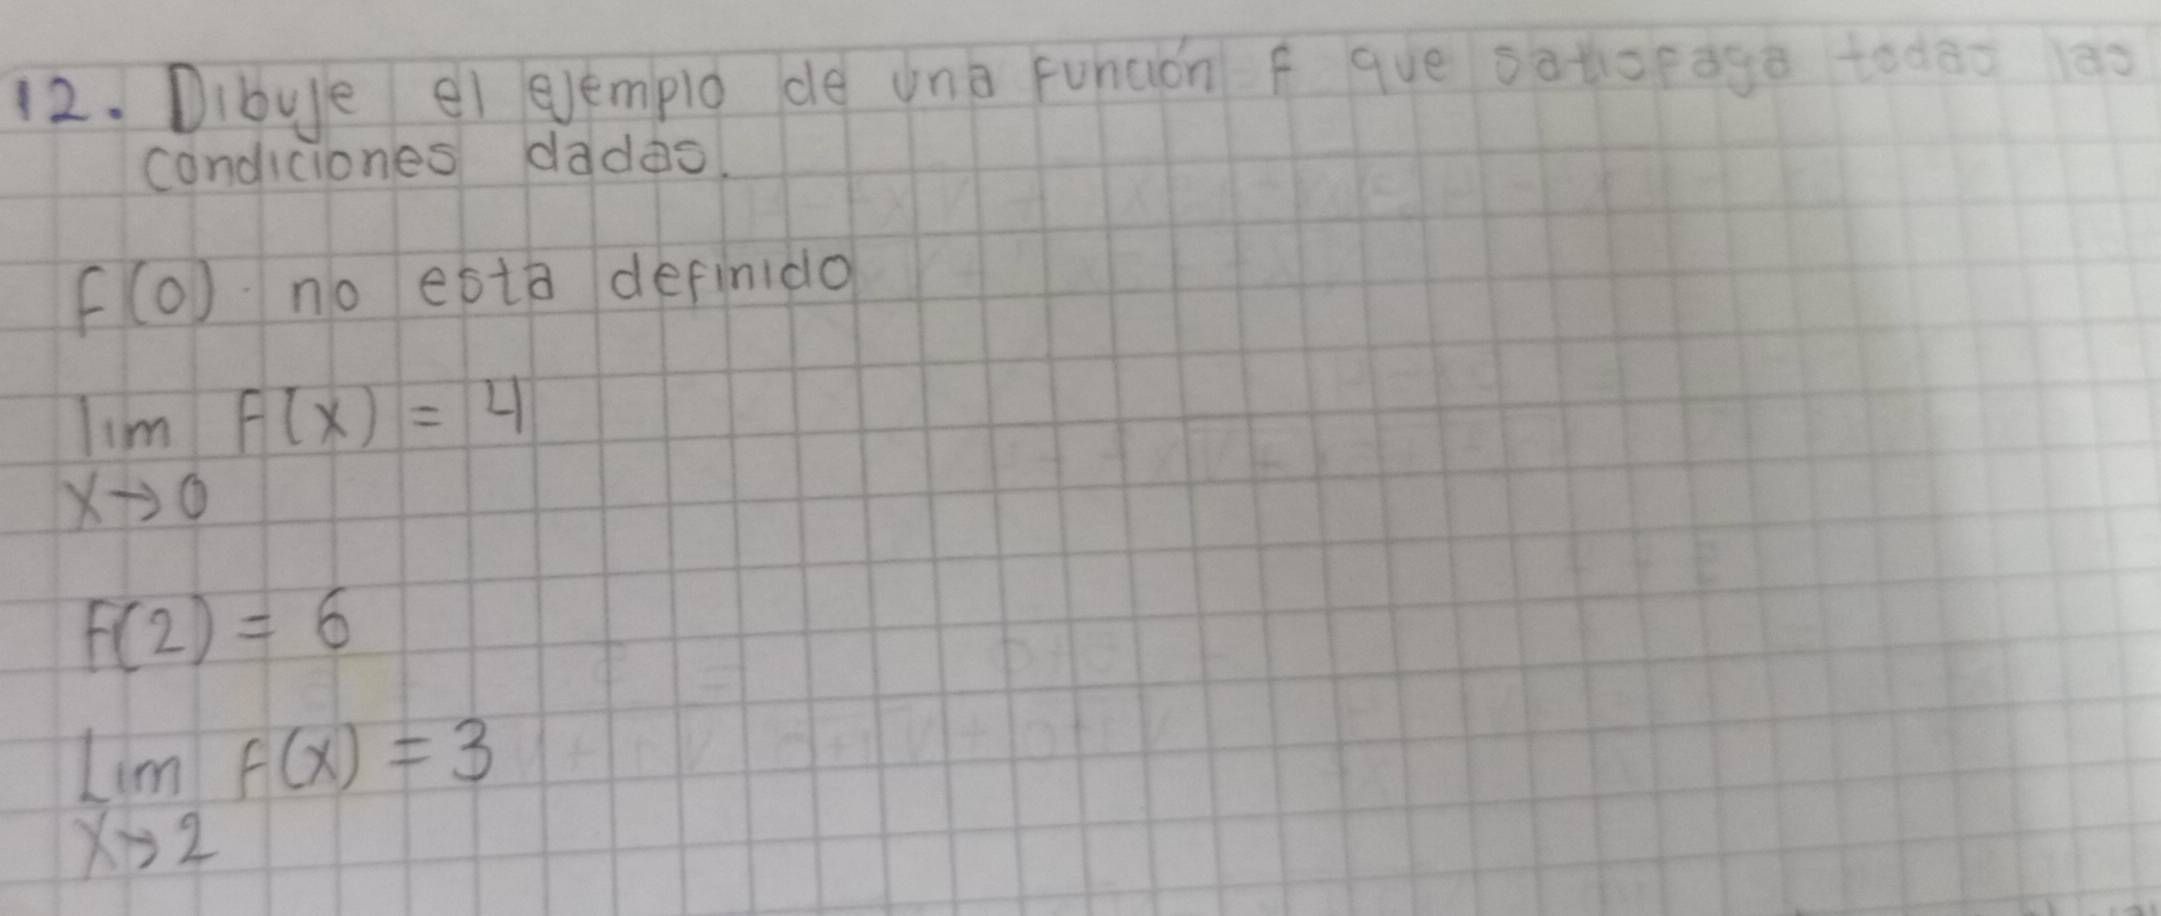 12. Dibuje el ejemplo de una función f que satisfaga todas las
condiciones dadas.
f(0) no esta definido
lim f(x) = 4
x→0
f(2) = 6
Lim f(x) = 3
x→2